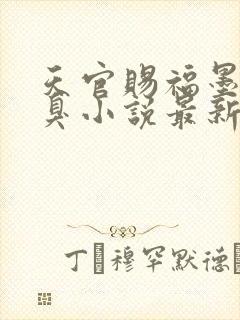 天官賜福墨
真小說最新
丁穆罕默德